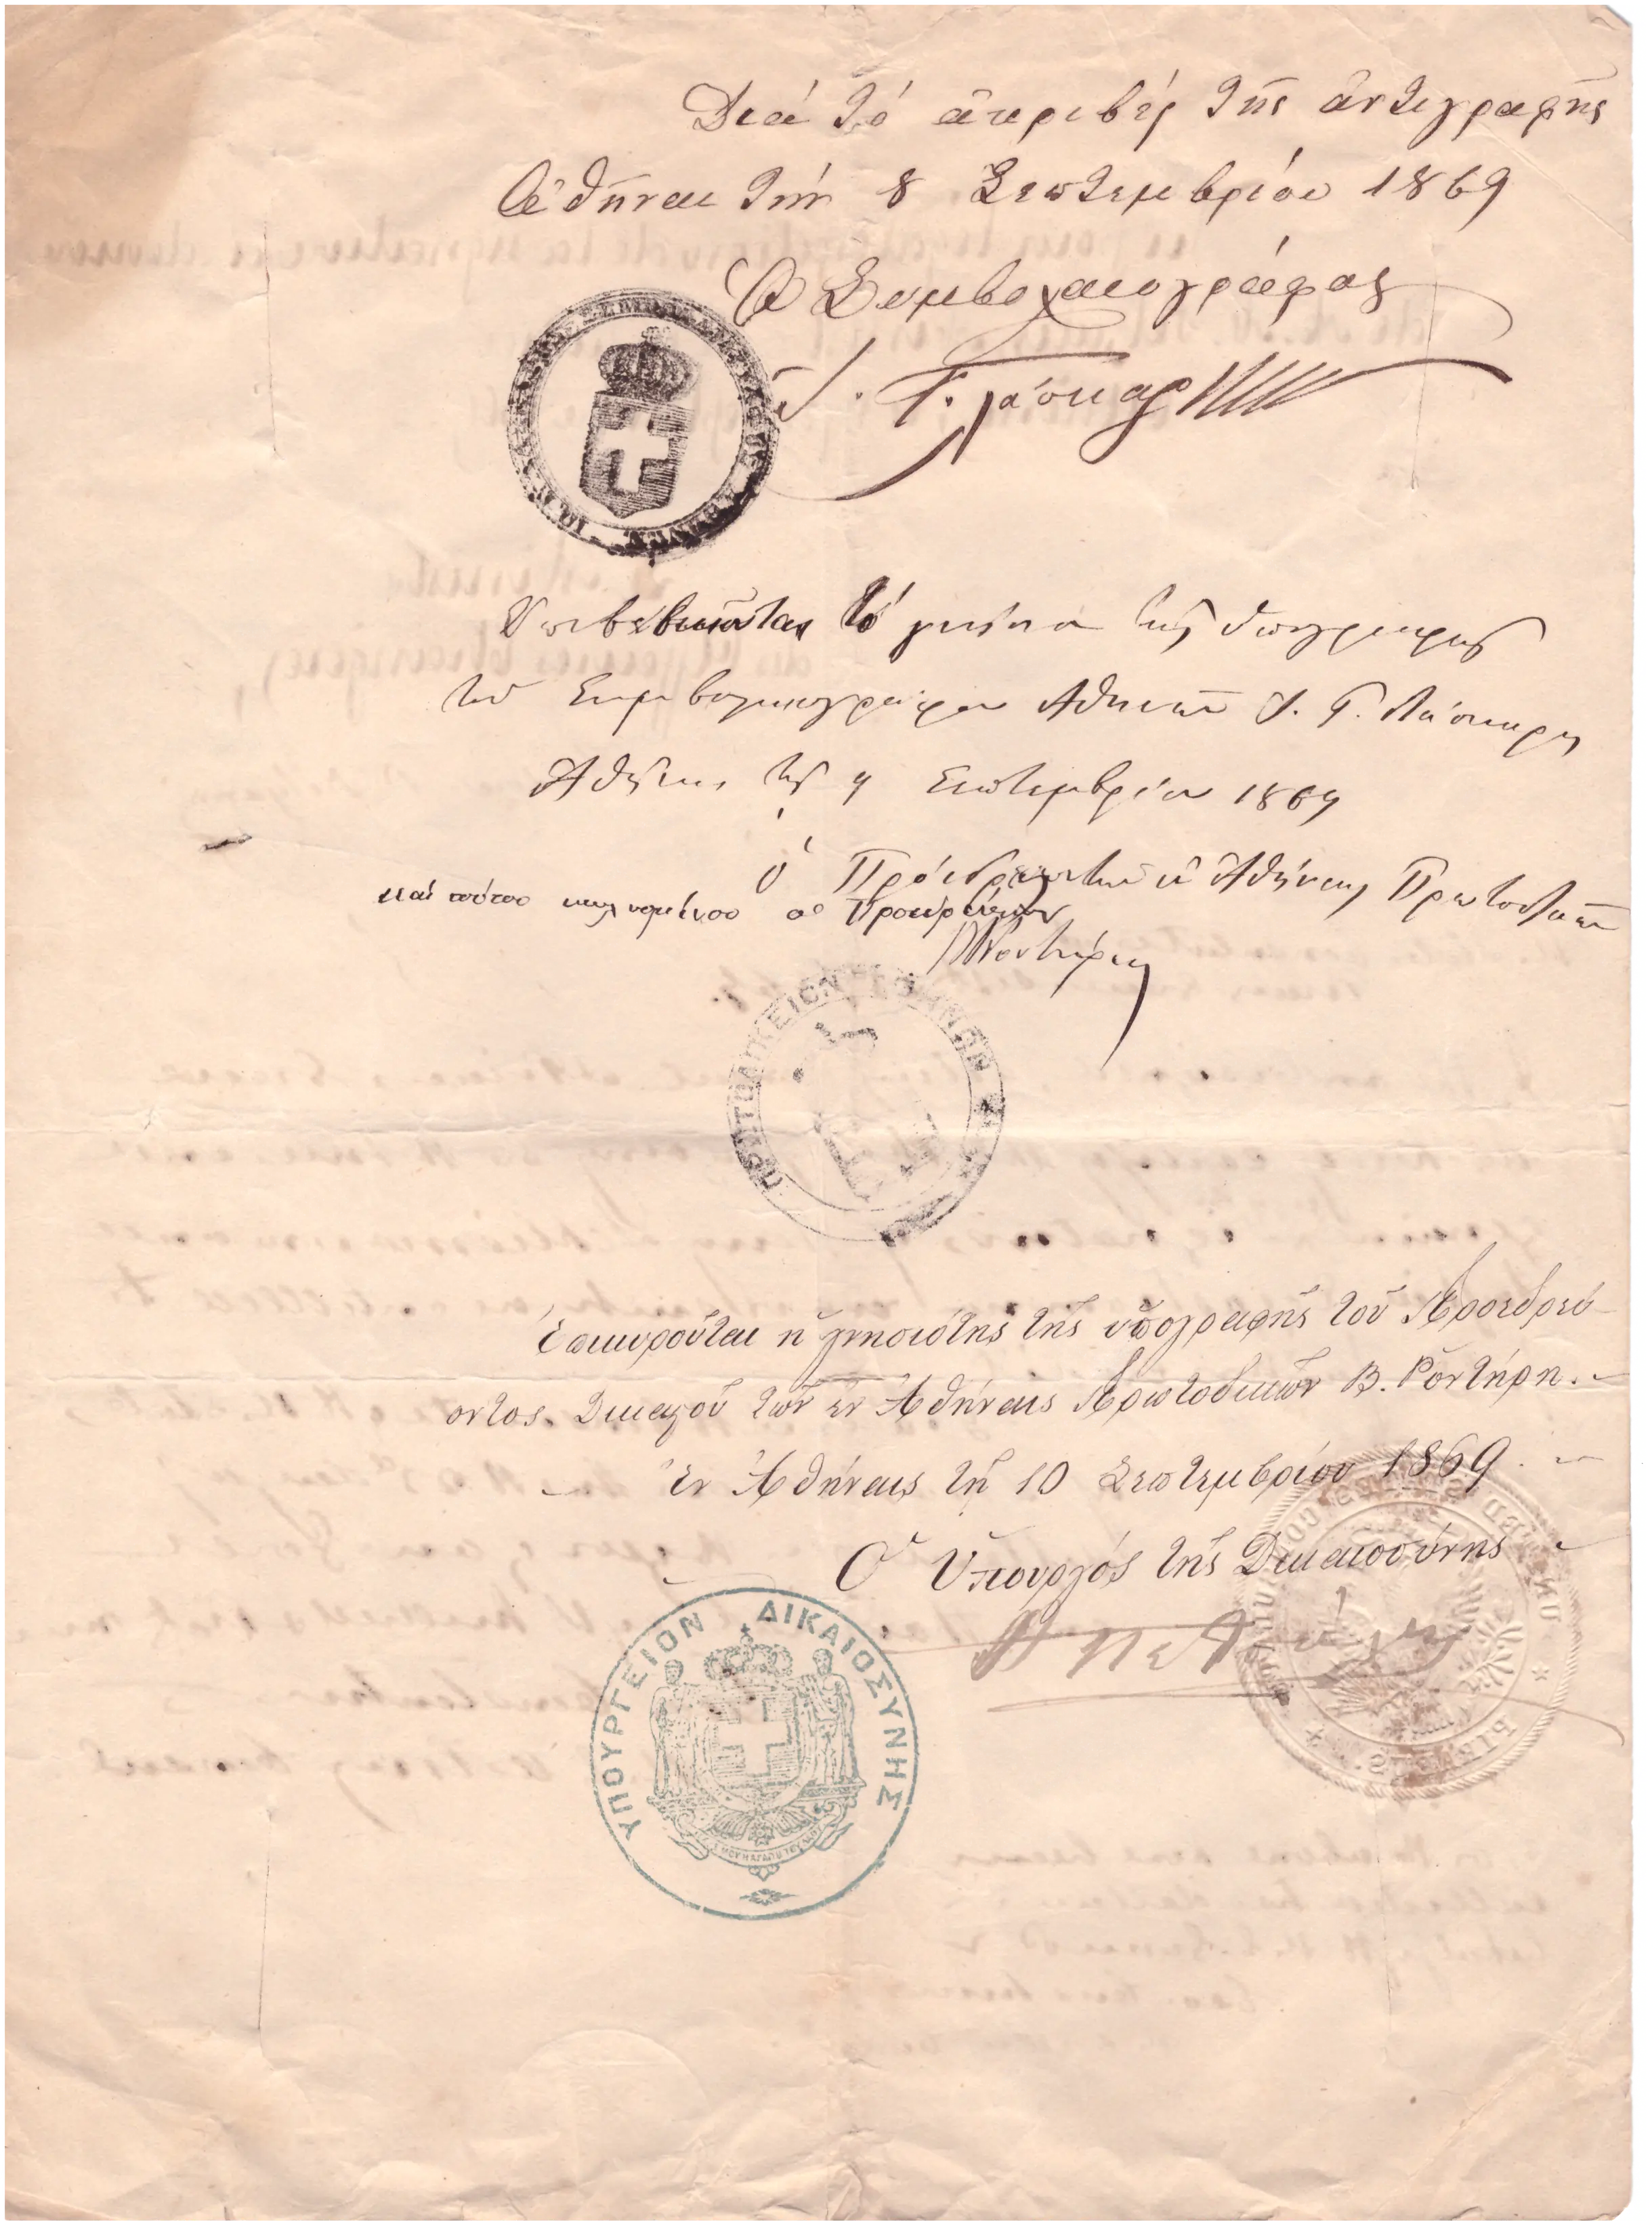 Διά τό ἀκριβές τῆς ἀντιγραφῆς
Ἀθῆναι τήν 8 Σεπτεμβρίου 1869
Ὁ Συμβολαιογράφος
Ι. Γ. Λάσκαρης
Ἐπιβεβαιοῦται τό γνήσιον τῆς ὑπογραφῆς
τοῦ Συμβολαιογράφου Ἀθηνῶν Ι. Γ. Λάσκαρη
Ἀθῆναι τῇ 9 Σεπτεμβρίου 1869
Ὁ Πρόεδρος τῶν ἐν Ἀθήναις Πρωτοδικῶν
καί τούτου κωλυομένου ὁ Προεδρεύων
Ροντήρης
ΠΡΩΤΟΔΙΚΕΙΟΝ ΑΘΗΝΩΝ
Ἐπικυροῦται ἡ γνησιότης τῆς ὑπογραφῆς τοῦ Προεδρεύ-
οντος Δικαστοῦ τῶν ἐν Ἀθήναις Πρωτοδικῶν Β. Ροντήρη.
Ἐν Ἀθήναις τῇ 10 Σεπτεμβρίου 1869.
Ὁ Ὑπουργός τῆς Δικαιοσύνης
ΥΠΟΥΡΓΕΙΟΝ ΔΙΚΑΙΟΣΥΝΗΣ